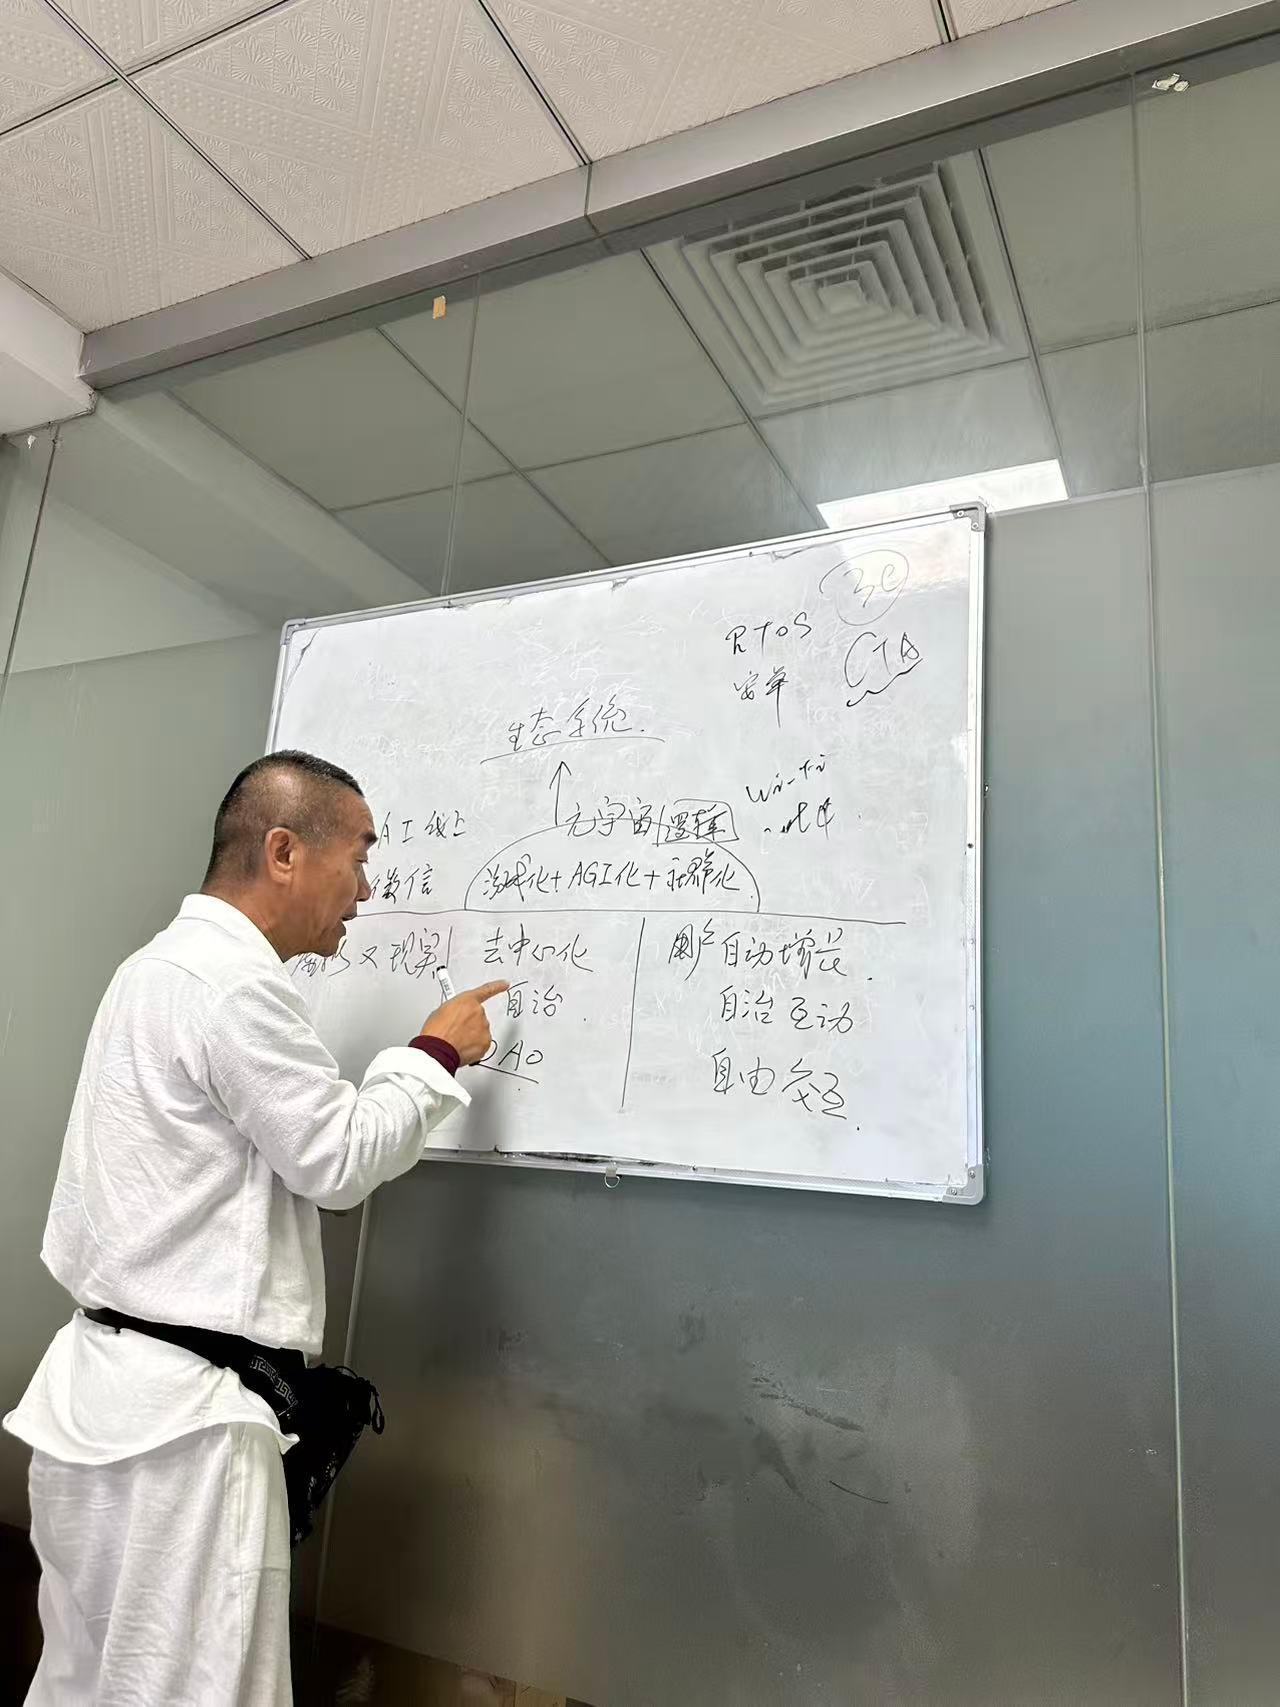 3C
RTOS
CTA
安单
生态系统.
元宇宙 逻辑
AI线上
微信
游戏化+AGI化+社群化
又现实
去中心化
自治.
DAO
用户自动增长.
自治互动
自由交互.